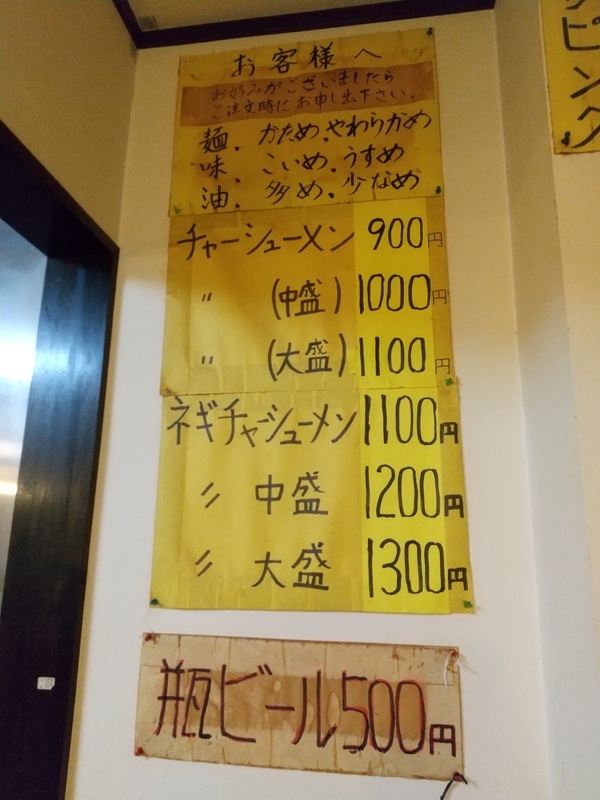 お客様へ
お好みがございましたら
ご注文時にお申し出下さい。
麺．かため．やわらかめ
味．こいめ．うすめ
油．多め．少なめ
チャーシューメン 900円
〃 (中盛) 1000円
〃 (大盛) 1100円
ネギチャーシューメン 1100円
〃 中盛 1200円
〃 大盛 1300円
瓶ビール500円
ピンへ